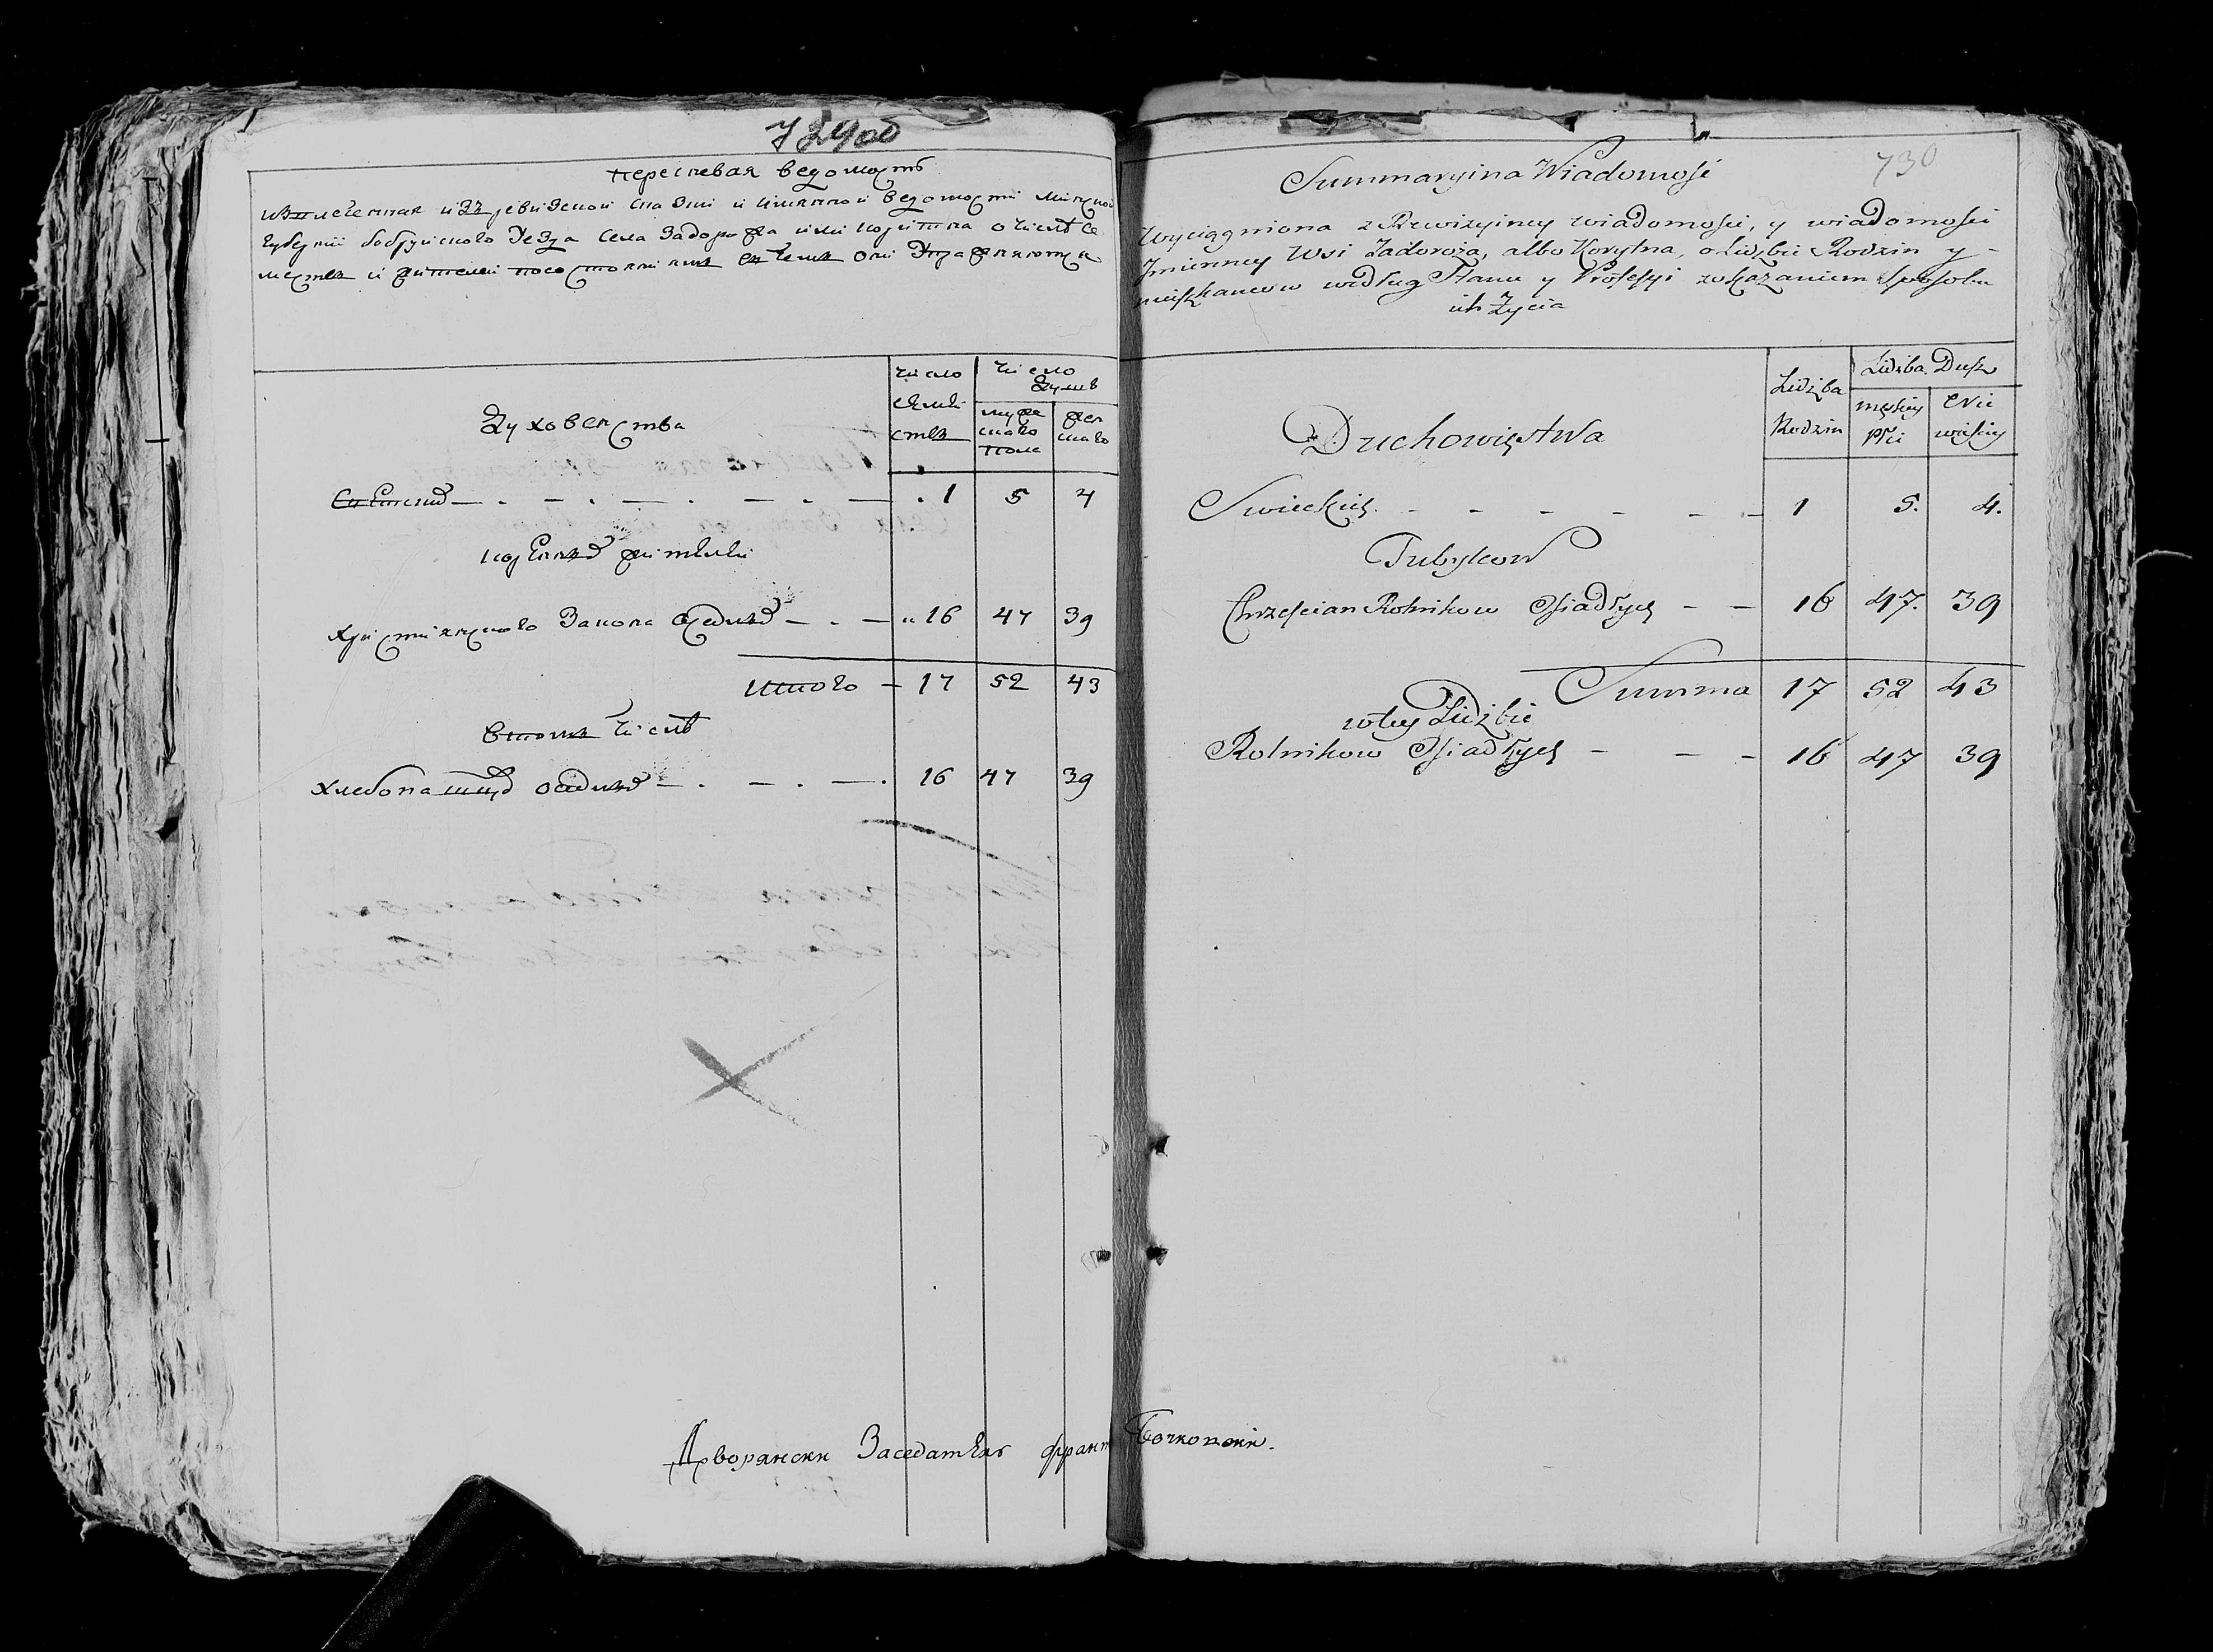 729 об
перечневая ведомость
изчисленная изъ ревизской скаски и имянной ведомости минской
губернии бобруйского уезда села Задорожа или корытна о числѣ се
мействъ и жителей по состояниямъ
духовенства
число семействъ
число душъ
мужескаго пола
женскаго
свѣтскихъ — . — . — . — . — 1 5 4
коренныхъ жители
християнскаго закона оседлыхъ — . — " 16 47 39
итого — 17 52 43
втомъ числѣ
хлебопашцовъ оседлыхъ — . — . — . 16 47 39
Дворянски Заседатель франц Бочковски.
730
Summaryina Wiadomość
Wyciągniona z Rewizyiney wiadomości, y wiadomości
Jmienney Wsi Zadoroża, albo Korytna, o Lidzbie Rodzin y -
mieszkancow według Stanu y Professyi zokazaniem Sposobu
ich Życia
Duchowięstwa
Lidzba Rodzin
Lidzba Dusz
męskiey płci
Niewieskiey
Swieckich. - - - - - - 1 5. 4.
Tubylcow
Chrześcian Rolnikow Osiadłych - - 16 47. 39
Summa 17 52 43
w tey Lidzbie
Rolnikow Osiadłych - - - 16 47 39